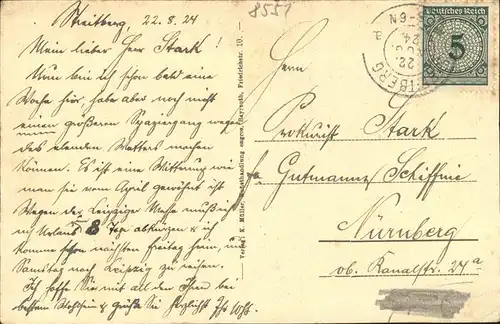 Streitberg, 22.8.24
8551
Mein lieber Herr Stark!
Nun bin ich schon bald eine
Woche hier, habe aber noch nicht
einen größeren Spaziergang wegen
des elenden Wetters machen
können. Es ist eine Witterung wie
man sie vom April gewöhnt ist
Wegen der Leipziger Messe muß ich
mein Urlaub 8 Tage abkürzen & ich
komme schon nächsten Freitag heim, um
Samstag nach Leipzig zu reisen.
Ich hoffe Sie mit all den Ihren bei
bestem Wohlsein & grüße Sie herzlichst Ihr
Verlag: K. Müller, Kunsthandlung engros, Bayreuth, Friedrichstr. 10.
Deutsches Reich
5
22
24
Herrn
Prokurist Stark
Gutmann Schiffnie
Nürnberg
ob. Kanalstr. 27a